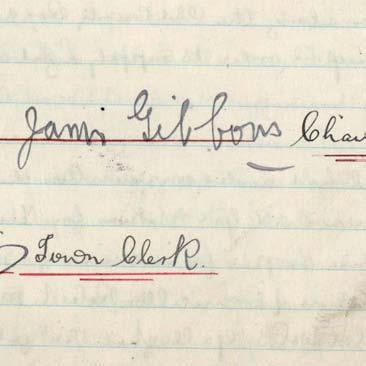 James Gibbons Chair
Town Clerk.